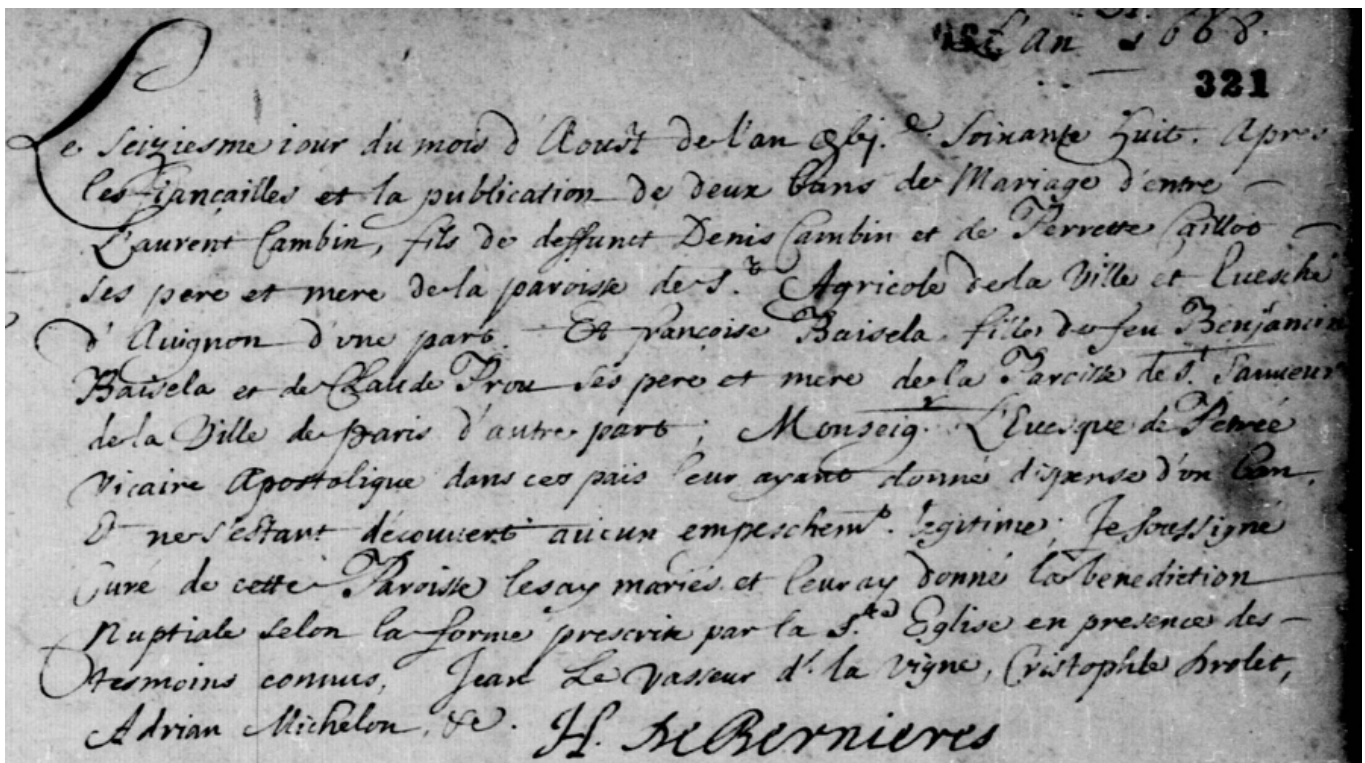 L'an 1668.
321
Le seiziesme iour du mois d'Aoust de l'an gbj.c soixante huit. Apres
les fiançailles et la publication de deux bans de Mariage d'entre
Laurent Cambin, fils de deffunct Denis Cambin et de Perrette Caillot
ses pere et mere de la paroisse de St. Agricole de la Ville et Euesché
d'Auignon d'vne part. Et françoise Baisela fille de feu Benjamin
Baisela et de Claude Prou ses pere et mere de la Paroisse de St. Sauueur
de la Ville de Paris d'autre part; Monseigr. L'Euesque de Petrée
Vicaire Apostolique dans ces païs leur ayant donné dispense d'vn ban,
Et ne s'estant découuert aucun empeschemt. legitime; Je soussigné
Curé de cette Paroisse les ay mariés et leur ay donné la benediction
Nuptiale selon la forme prescrite par la Ste Eglise en presence des
tesmoins connus, Jean Le Vasseur dt. la Vigne, Cristophle Drolet,
Adrian Michelon, &c. H. de Bernieres